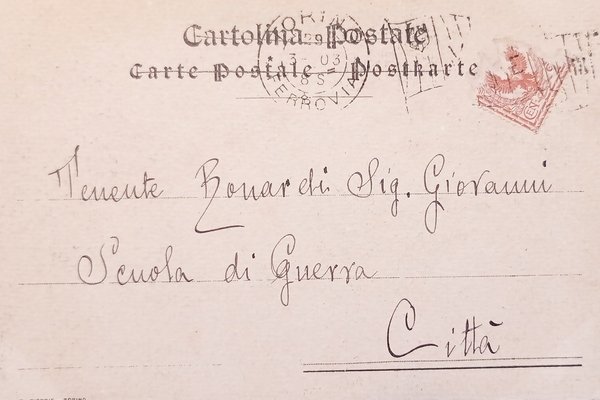 Cartolina Postale
Carte Postale Postkarte
TORINO
29
3 - 03
8 S
FERROVIA
Tenente Bonardi Sig. Giovanni
Scuola di Guerra
Città
TORINO